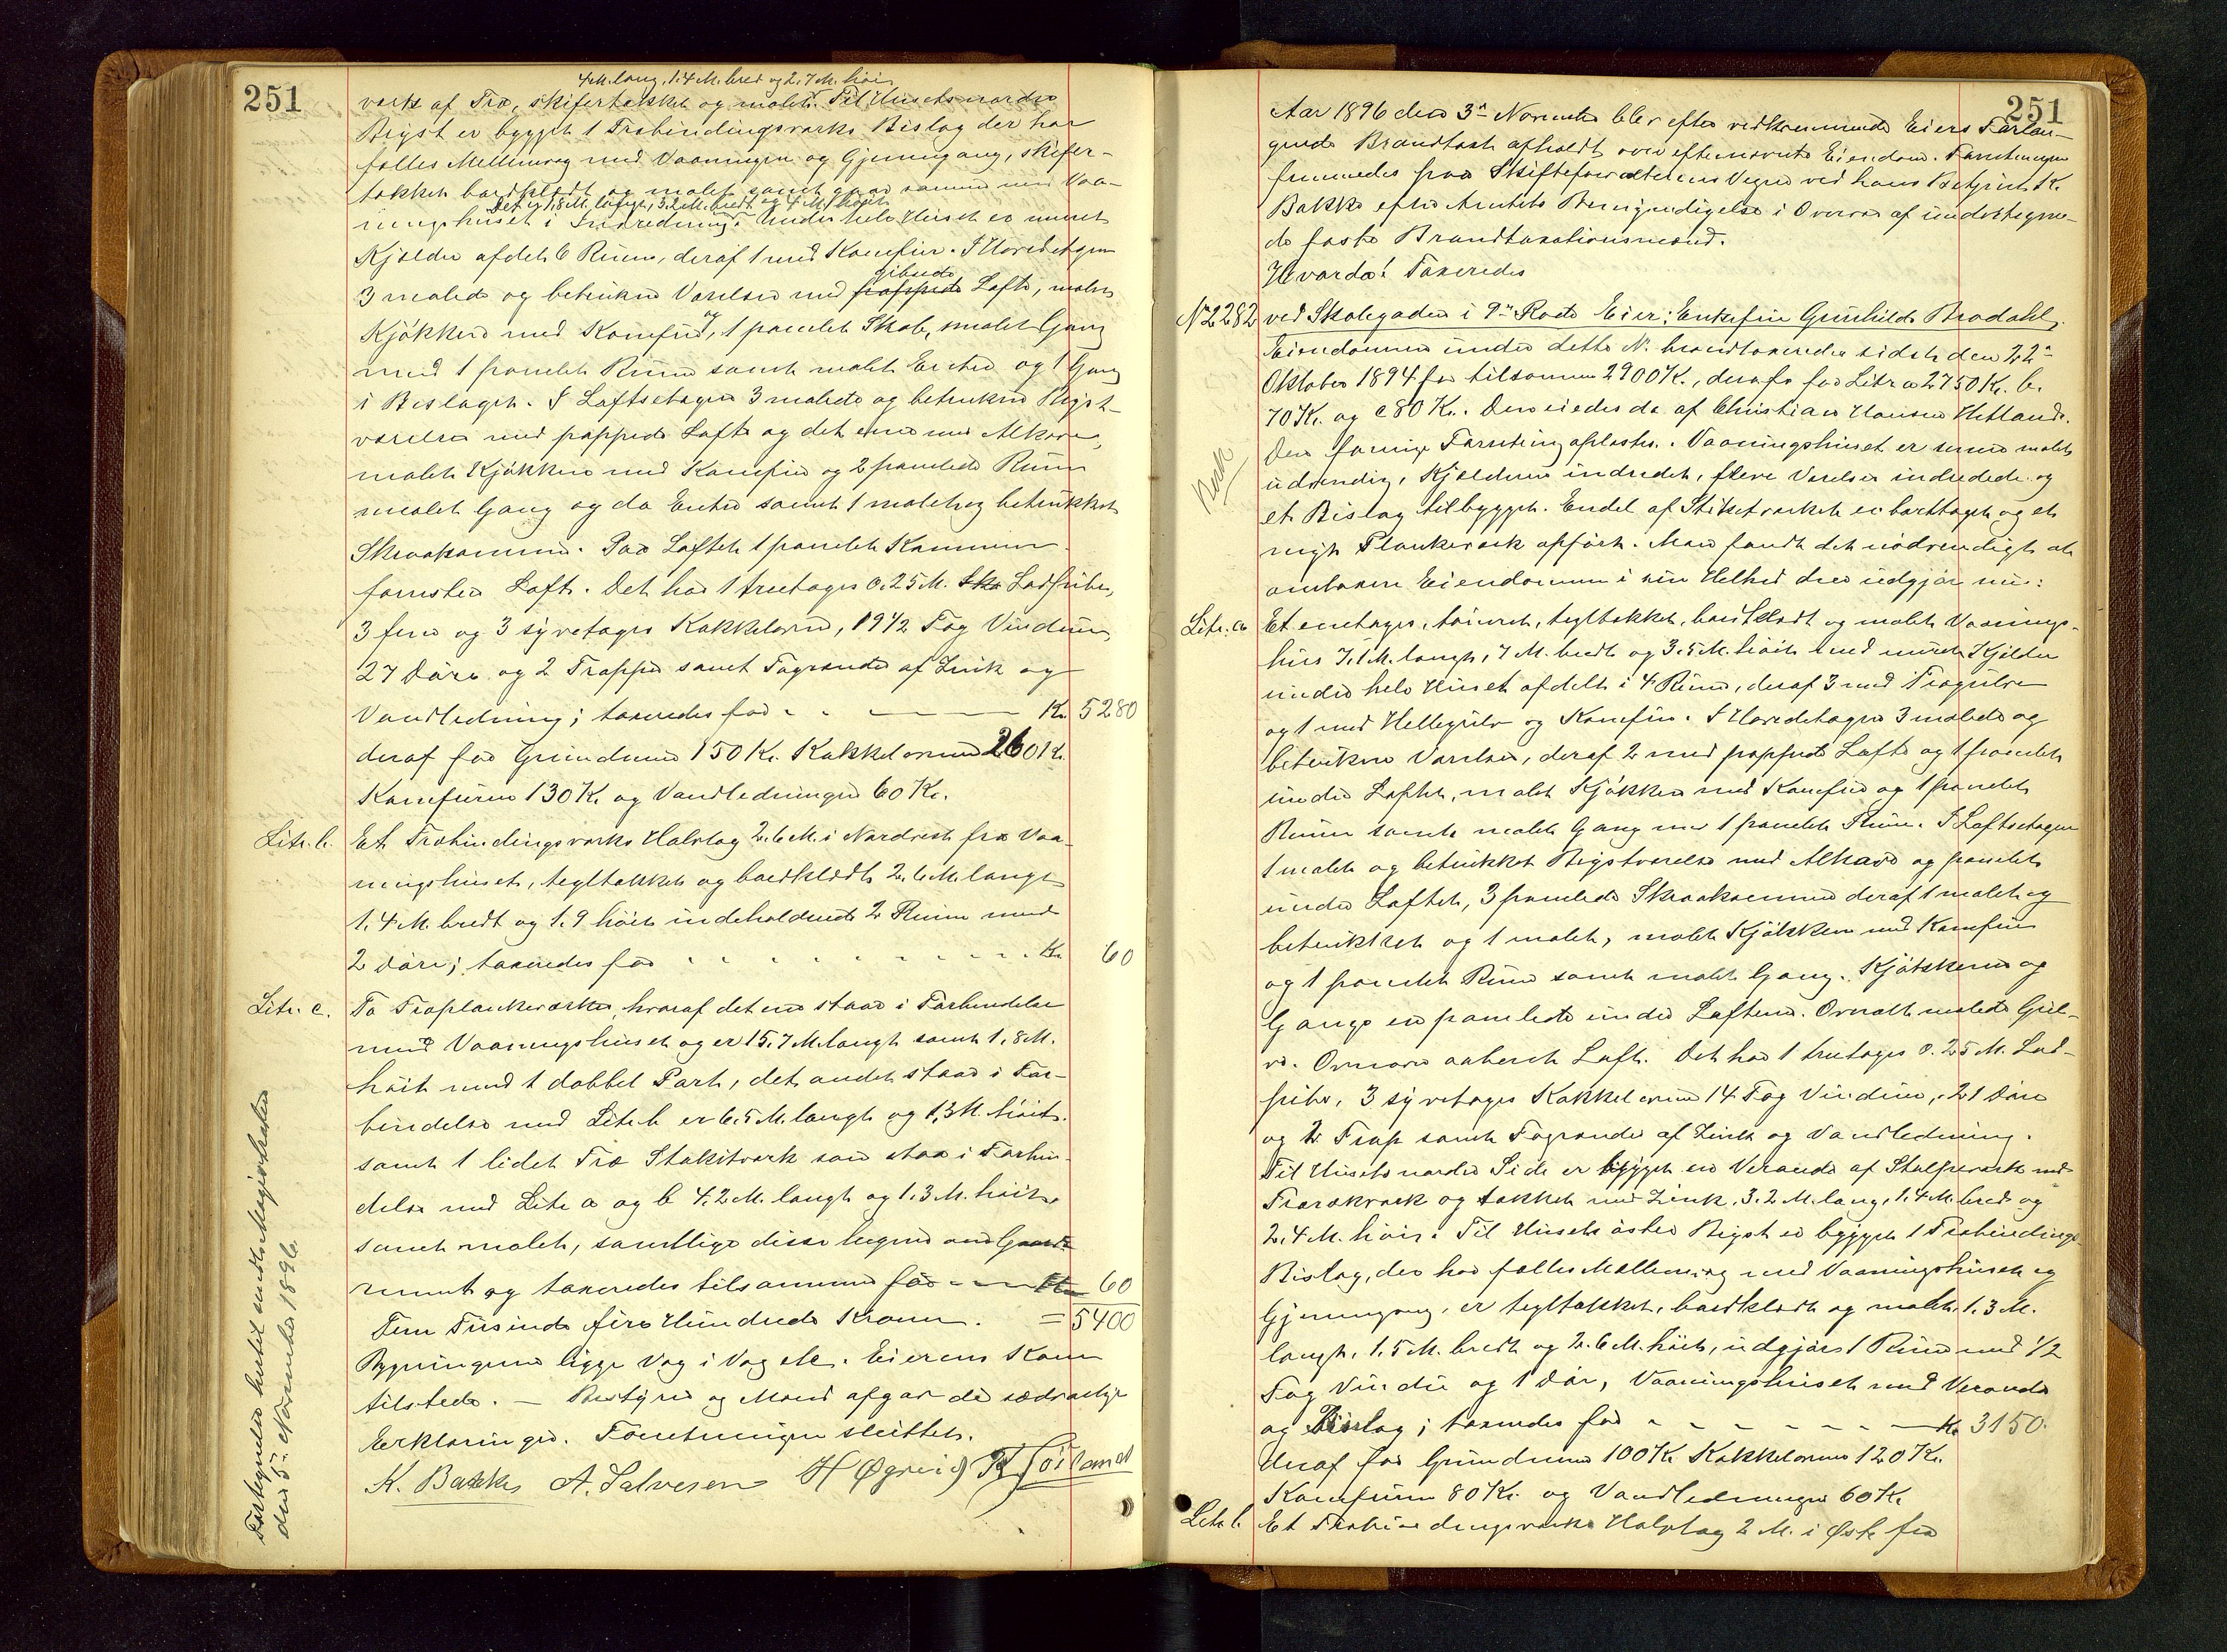 251
4 M. lang, 1.4 M. bred og 2.7 M. höi
værk af Træ, skifertækket og malet. Til Husets nordre
Bygst er bygget 1 Træbindingsværks Bislag der har
fælles Mellemvæg med Vaaningen og Gjennemgang, skifer-
tækket bordklædt og malet samt gaar sammen med Vaa-
Det er 1.8 M. langt, 3.2 M. bredt og 4 M. höit
ningshuset i Indredning. Under hele Huset er muret
Kjelder afdelt 6 Rum, deraf 1 med Komfur. I Hovedetagen
gibsede
3 malede og betrukne Værelser med pappede Lofte, malet
Kjøkken med Komfur, og 1 panelet Skab, malet Gang
med 1 panelet Rum samt malet Entre og 1 Gang
i Bislaget. I Loftsetagen 3 malede og betrukne Bygst-
værelser med pappede Lofte og det ene med Alkove,
malet Kjøkken med Komfur og 2 panelede Rum
malet Gang og do Entre samt 1 malet og betrukket
Skraakammer. Paa Loftet 1 panelet Kammer
forresten Loft. Det har 1 treetages 0.25 M. Ska Ladpibe,
3 fire og 3 syvetages Kakkelovne, 19 1/2 Fag Vinduer,
27 Døre og 2 Trapper samt Tagrender af Zink og
Vandledning; taxeredes for - - — Kr. 5280
deraf for Grundmur 150 Kr. Kakkelovnene 260 Kr.
Komfurene 130 Kr. og Vandledningen 60 Kr.
Litr. b. Et Træbindingsværks Halvtag 2.6 M. i Nordvest fra Vaa-
ningshuset, tegltækket og bordklædt 2.6 M. langt
1.4 M. bredt og 1.9 höit indeholdende 2 Rum med
2 Døre; taxeredes for - - - - - - - - Kr. 60
Litr. c. To Træplankeværker, hvoraf det ene staar i Forbindelse
med Vaaningshuset og er 15.7 M. langt samt 1.8 M.
höit med 1 dobbel Port, det andet staar i For-
bindelse med Litr. b er 6.5 M. langt og 1.3 M. höit.
samt 1 lidet Træ Stakitværk som staar i Forbin-
delse med Litr a og b 4.2 M. langt og 1.3 M. höit,
samt malet, samtlige disse hegner om Gaards-
rummet og taxeredes tilsammen for — Kr. 60
Fem Tusinde fire Hundrede Kroner. = 5400
Bygningerne ligge Væg i Væg etc. Eierens Kone
tilstede. — Bestyrer og Mænd afgav de sædvanlige
Erklæringer. Forretningen sluttet.
K. Bakke A. Salvesen H Øgreid R. Foiland
Fortegnelse hertil sendt Magistraten
den 5te November 1896.
251
Aar 1896 den 3de November blev efter vedkommende Eiers Forlan-
gende Brandtaxt afholdt over efternævnte Eiendom. Forretningen
fremmedes paa Skifteforvalterens Vegne ved hans Betjent K.
Bakke efter Amtets Bemyndigelse i Overvær af undertegne-
de faste Brandtaxationsmænd.
Hvorda! Taxeredes
No 2282 ved Skolegaden i 9de Rode Eier: Enkefru Gunhilde Brodahl.
Eiendommen under dette No. brandtaxeredes sidst den 22de
Oktober 1894 for tilsammen 2900 Kr., deraf for Litr a 2750 Kr. b.
70 Kr. og c 80 Kr. Den eiedes da af Christian Hansen Hetland.
Den forrige Forretning oplæstes. Vaaningshuset er senere malet
udvendig, Kjelderen indredet, flere Værelser indredede og
et Bislag tilbygget. Endel af Stakitværket er borttaget og et
nyt Plankeværk opført. Man fandt det nødvendigt at
omtaxere Eiendommen i sin Helhed den udgjør nu:
Litr. a Et eenetages, tømret, tegltækket, bordklædt og malet Vaanings-
hus 7.1 M. langt, 7 M. bredt og 3.5 M. höit med muret Kjelder
under hele Huset afdelt i 4 Rum, deraf 3 med Trægulve
og 1 med Hellegulv og Komfur. I Hovedetagen 3 malede og
betrukne Værelser, deraf 2 med pappede Lofte og 1 panelet
under Loftet, malet Kjøkken med Komfur og 1 panelet
Rum samt malet Gang med 1 panelet Rum. I Loftsetagen
1 malet og betrukket Bygstværelse med Alkove og panelet
under Loftet, 3 panelede Skraakammere deraf 1 malet og
betrukket og 1 malet, malet Kjøkken med Komfur
og 1 panelet Rum samt malet Gang. Kjøkkener og
Gange er panelede under Loftene. Overalt malede Gul-
ve. Ovenover aabent Loft. Det har 1 treetages 0.25 M. Lad-
pibe, 3 syvetages Kakkelovne 14 Fag Vinduer, 21 Døre
og 2 Trap samt Tagrender af Zink og Vandledning.
Til Husets nordre Side er bygget en Veranda af Stolpeværk med
Trærækværk og tækket med Zink, 3.2 M. lang, 1.4 M. bred og
2.4 M. höi. Til Husets østre Bygst er bygget 1 Træbindings-
Bislag, der har fælles Mellemvæg med Vaaningshuset og
Gjennemgang, er tegltækket, bordklædt og malet, 1.3 M.
langt, 1.5 M. bredt og 2.6 M. höit, udgjør 1 Rum med 1/2
Fag Vindu og 1 Dør, Vaaningshuset med Veranda
og Bislag; taxeredes for - - - - - - Kr. 3150.
deraf for Grundmuren 100 Kr. Kakkelovnene 120 Kr.
Komfurene 80 Kr. og Vandledningen 60 Kr.
Litr. b. Et Træbindingsværks Halvtag 2 M. i Øst fra